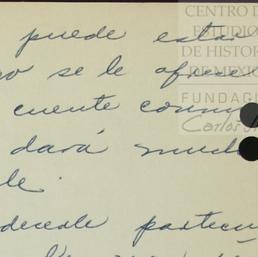 puede estar
se le ofrece
cuente conmi
dará mucho
le.
decerle particu
CENTRO D
ESTUDIO
DE HISTOR
DE MEXIC
FUNDACI
Carlos S